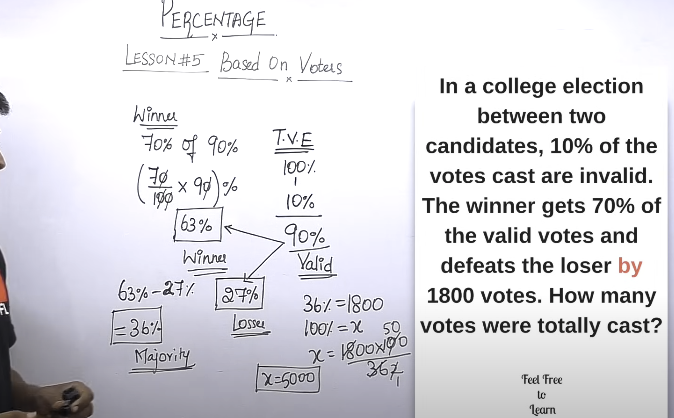 PERCENTAGE
x
LESSON#5 Based On Voters
x
Winner
70% of 90%
(70/100 × 90)%
63%
Winner
63%-27%
=36%
Majority
T.V.E
100%
10%
90%
Valid
27%
Losser
36%=1800
100%=x
50
x=1800×100
36%
1
x=5000
In a college election
between two
candidates, 10% of the
votes cast are invalid.
The winner gets 70% of
the valid votes and
defeats the loser by
1800 votes. How many
votes were totally cast?
Feel Free
to
Learn